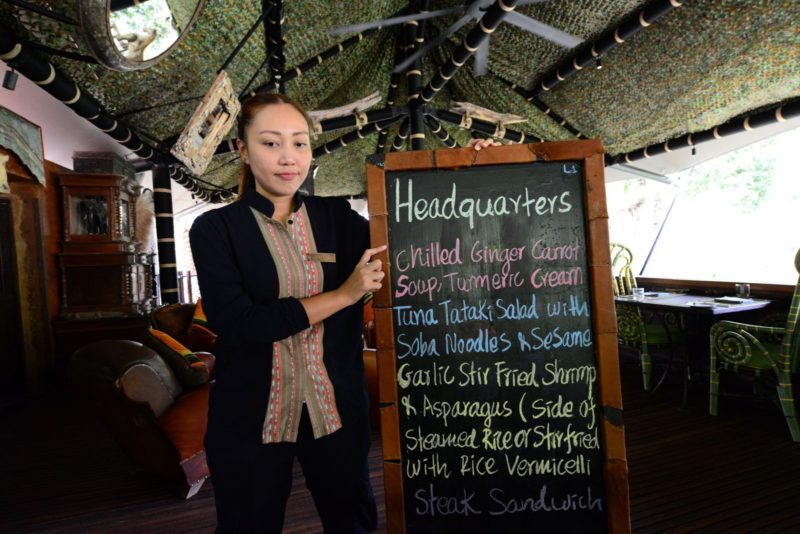 L1
Headquarters
Chilled Ginger Carrot
Soup, Turmeric Cream
Tuna Tataki Salad with
Soba Noodles & Sesame
Garlic Stir Fried Shrimp
& Asparagus (Side of
Steamed Rice or Stirfried
with Rice Vermicelli
Steak Sandwich